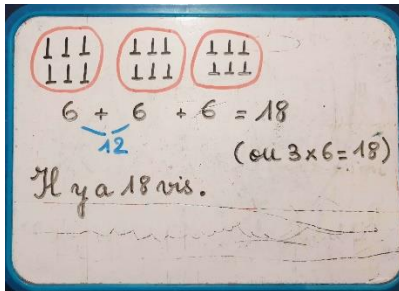 6 + 6 + 6 = 18
12
(ou 3 x 6 = 18)
Il y a 18 vis.